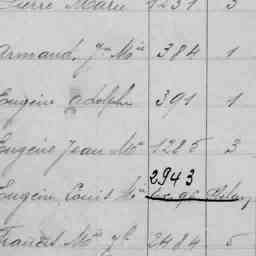 Pierre Marie 1231 3
Armand, Jn Mie 384 1
Eugène Adolphe 391 1
Eugène Jean Mie 1285 3
2943
Eugène Louis Mie
Francis Mie 2484 5